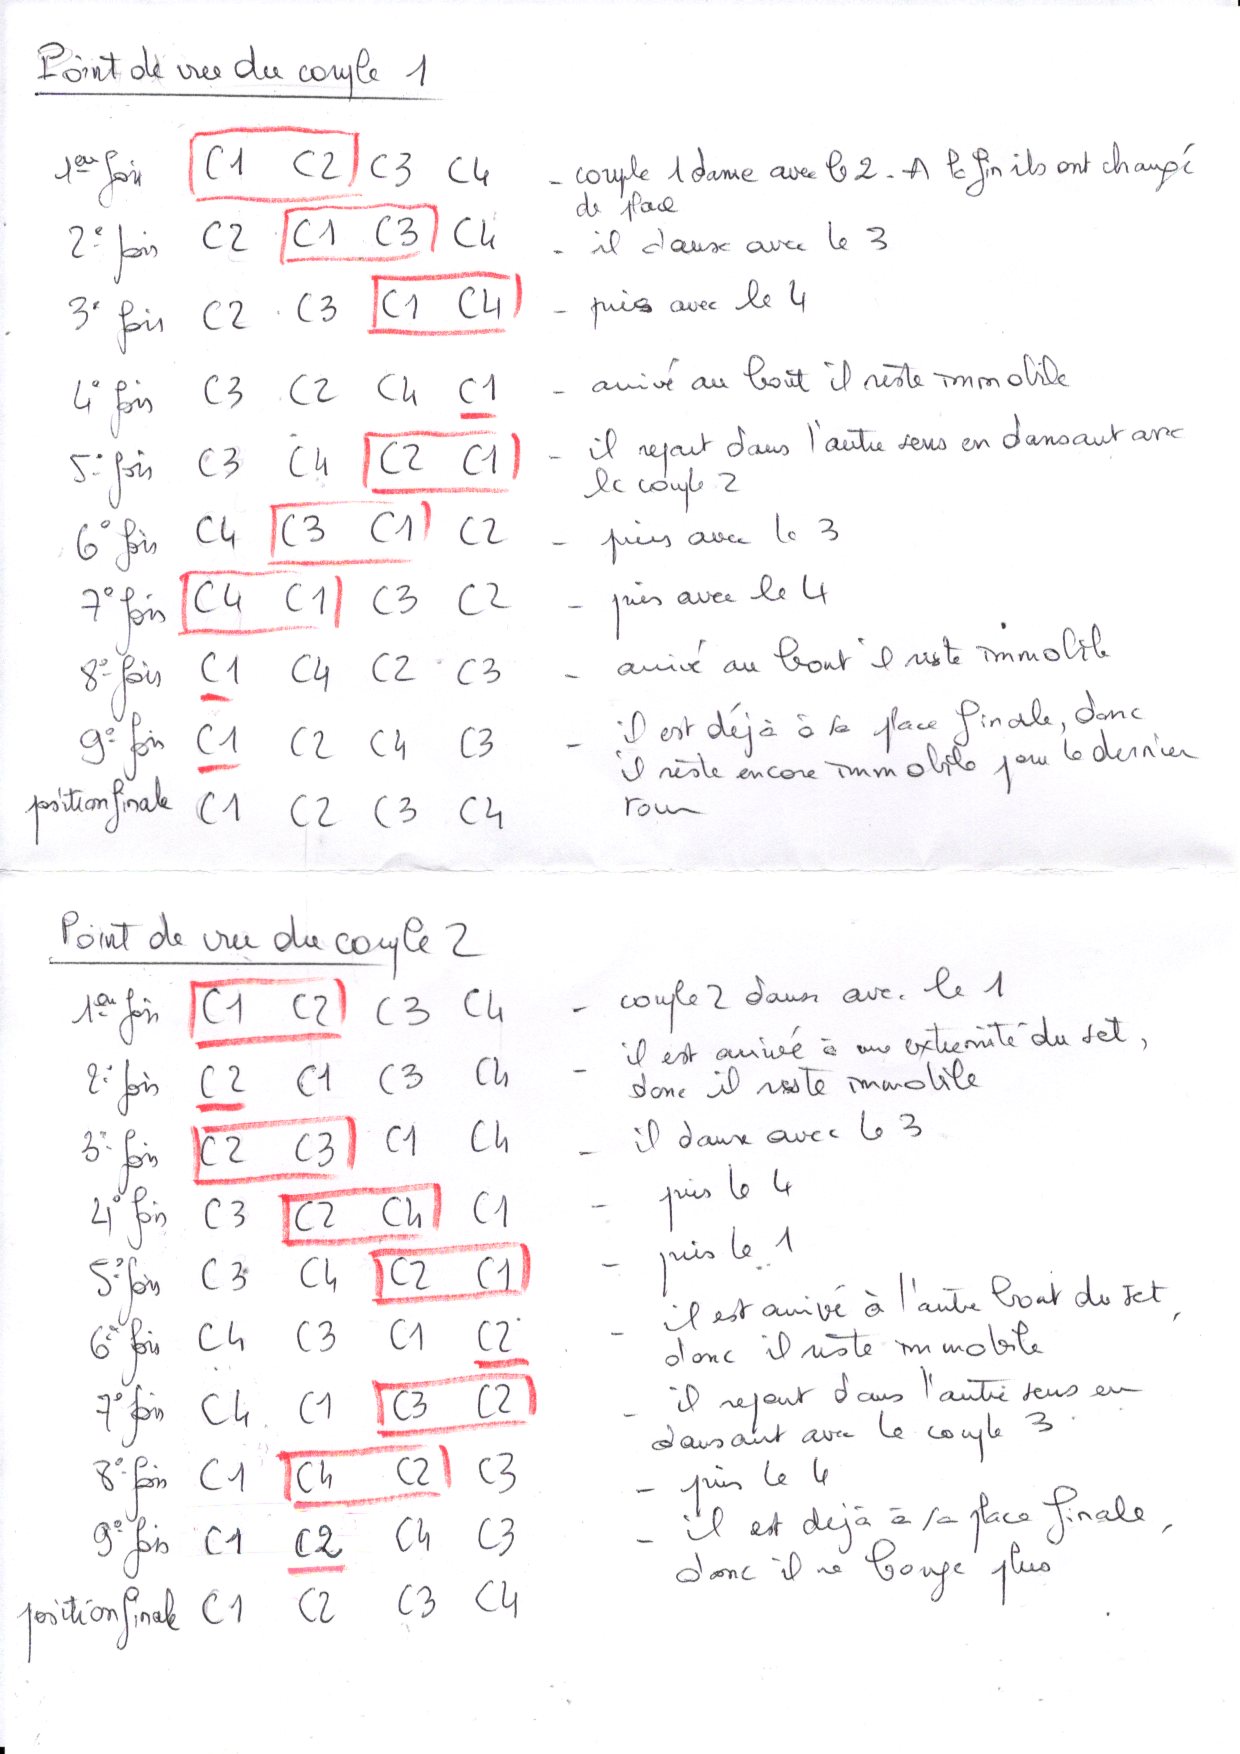 Point de vue du couple 1
1ère fois C1 C2 C3 C4 - couple 1 danse avec le 2. A la fin ils ont changé
de place
2e fois C2 C1 C3 C4 - il danse avec le 3
3e fois C2 C3 C1 C4 - puis avec le 4
4e fois C3 C2 C4 C1 - arrivé au bout il reste immobile
5e fois C3 C4 C2 C1 - il repart dans l'autre sens en dansant avec
le couple 2
6e fois C4 C3 C1 C2 - puis avec le 3
7e fois C4 C1 C3 C2 - puis avec le 4
8e fois C1 C4 C2 C3 - arrivé au bout il reste immobile
9e fois C1 C2 C4 C3 - il est déjà à sa place finale, donc
il reste encore immobile pour le dernier
tour
position finale C1 C2 C3 C4
Point de vue du couple 2
1ère fois C1 C2 C3 C4 - couple 2 danse avec le 1
2e fois C2 C1 C3 C4 - il est arrivé à une extremité du set,
donc il reste immobile
3e fois C2 C3 C1 C4 - il danse avec le 3
4e fois C3 C2 C4 C1 - puis le 4
5e fois C3 C4 C2 C1 - puis le 1
6e fois C4 C3 C1 C2 - il est arrivé à l'autre bout du set,
donc il reste immobile
7e fois C4 C1 C3 C2 - il repart dans l'autre sens en
dansant avec le couple 3
8e fois C1 C4 C2 C3 - puis le 4
9e fois C1 C2 C4 C3 - il est déjà à sa place finale,
donc il ne bouge plus
position finale C1 C2 C3 C4